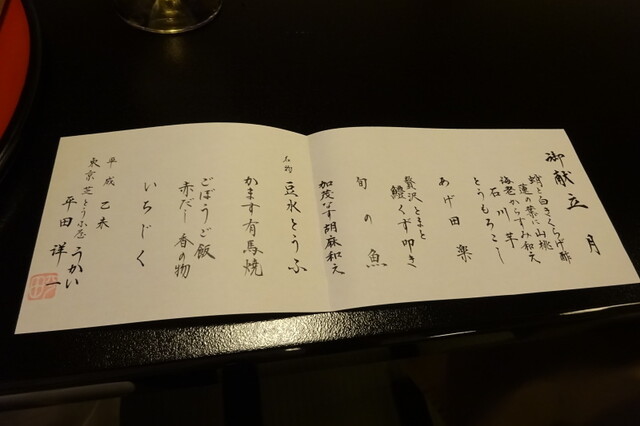 御献立 月
蛸と白きくらげ酢
蓮の葉に山桃
海老からすみ和え
石川芋
とうもろこし
あげ田楽
贅沢とまと
鱧くず叩き
旬の魚
加茂なす胡麻和え
名物 豆水とうふ
かます有馬焼
ごぼうご飯
赤だし 香の物
いちじく
平成 己未
東京芝とうふ屋うかい
平田 祥一